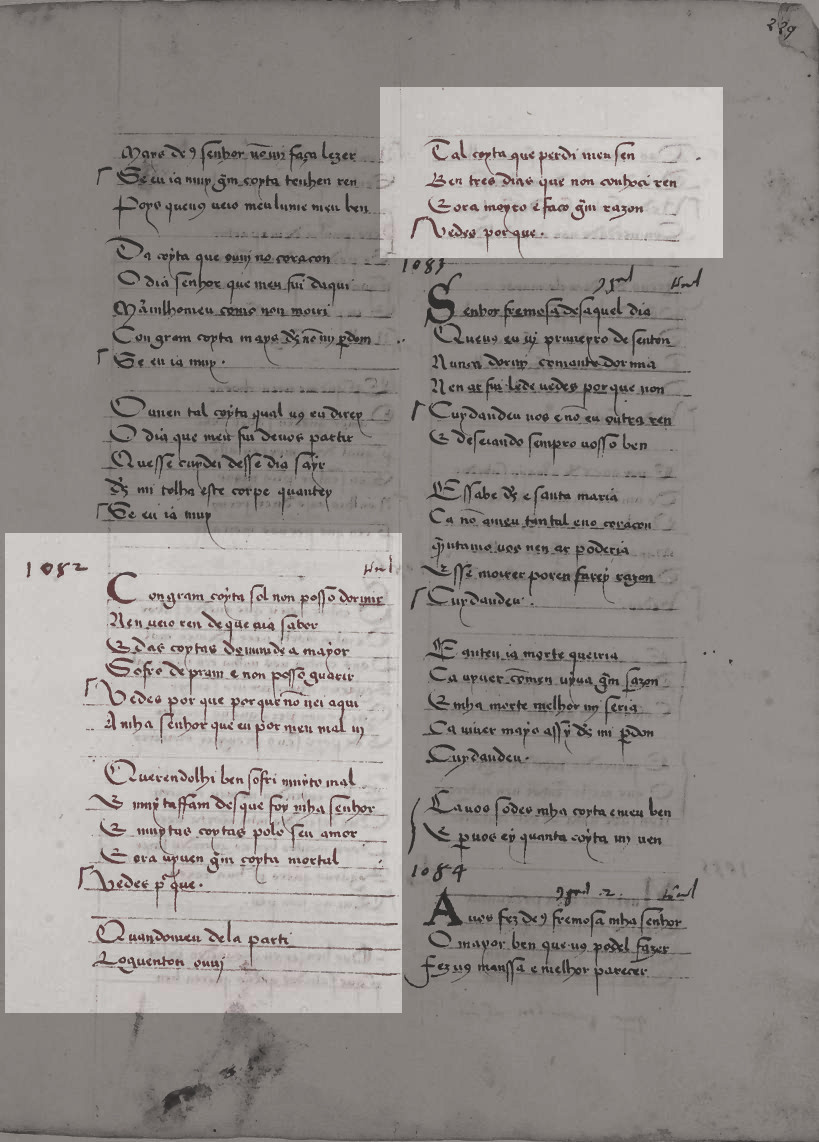 229
Mays de9 senhor nō mi faça lezer
Se eu ia muy gm̃ coyta tenhen ren
Poys queu9 ueio meu lume meu ben
Da coyta que ouui no coraçon
O dia senhor que meu fui daqui
Marauilhome como non moiri
Con gram coyta mays ds̃ nō mi pdom
Se eu ia muy.
Ouuen tal coyta qual u9 eu direy
O dia que meu fui deuos partir
Que sse cuydei desse dia sayr
ds̃ mi tolha este corpo quantey
Se eu ia muy
1082
Con gram coyta sol non posso dormir
Nen ueio ren de que aia sabor
E das coytas do mundo a mayor
Sofro de pram e non posso guarir
Vedes por que por que nō uei aqui
A mha senhor que eu por meu mal ui
Querendolhi ben sofri muyto mal
E muyt affam desque foy mha senhor
E muytas coytas polo seu amor
E ora uyuen gm̃ coyta mortal
Vedes p̃ que.
Quandomeu dela parti
Loguentou ouui
Tal coyta que perdi meu sen
Ben tres dias que non conhoci ren
E ora moyro e faco gm̃ razon
Vedes por que.
1083
Senhor fremosa desaquel dia
Queu9 eu ui primeyro desenton
Nunca dormy comante dormia
Nen ar fui lede uedes por que non
Cuydandeu uos e nō eu outra ren
E deseiando sempro uosso ben
E ssabe ds̃ e santa maria
Ca nō ameu tan tal eno coracon
quātamo uos nen ar poderia
E sse moirer poren farey razon
Cuydandeu.
E anten ia morte queiria
Ca uyuer comen uyuo gm̃ sazon
E mha morte melhor mi seria
Ca uiuer mays assy ds̃ mi pdon
Cuydandeu.
Ca uos sodes mha coyta e meu ben
E p uos ey quanta coyta mi uen
1084
A uos fez de9 fremosa mha senhor
O mayor ben que u9 podel fazer
Fez u9 manssa e melhor parecer